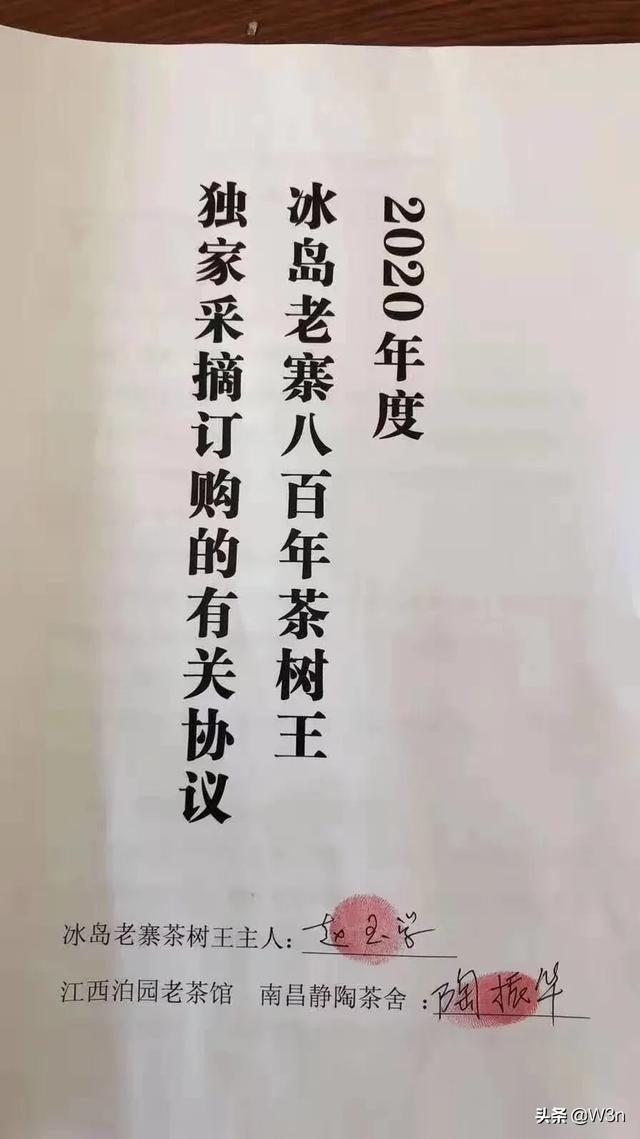 2020年度
冰岛老寨八百年茶树王
独家采摘订购的有关协议
冰岛老寨茶树王主人：赵玉学
江西泊园老茶馆 南昌静陶茶舍：陶振华
头条 @W3n